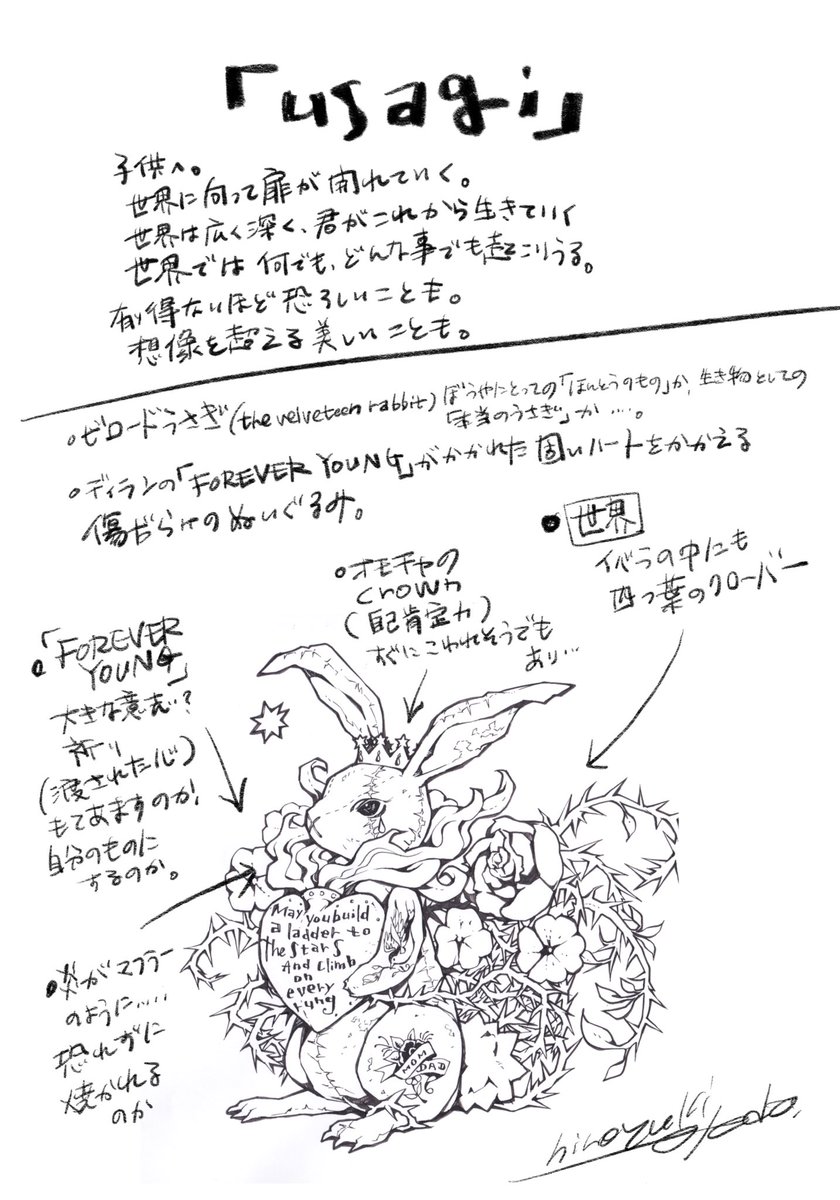 「usagi」
子供へ。
世界に向って扉が開れていく。
世界は広く深く、君がこれから生きていく
世界では何でも、どんな事でも起こりうる。
有り得ないほど恐ろしいことも。
想像を超える美しいことも。
•ビロードうさぎ(the velveteen rabbit) ぼうやにとっての「ほんとうのもの」か、生き物としての
「本当のうさぎ」か….。
•ディランの「FOREVER YOUNG」がかかれた固いハートをかかえる
傷だらけのぬいぐるみ。
•世界
イバラの中にも
四つ葉のクローバー
•オモチャの
crown
(自己肯定力)
すぐにこわれそうでも
あり…
•「FOREVER
YOUNG」
大きな意志?
祈り
(渡された心)
もてあますのか、
自分のものに
するのか。
•炎がマフラー
のように….
恐れずに
焼かれる
のか
May you build
a ladder to
the stars
And climb
on
every
rung
MOM
DAD
hiroyuki